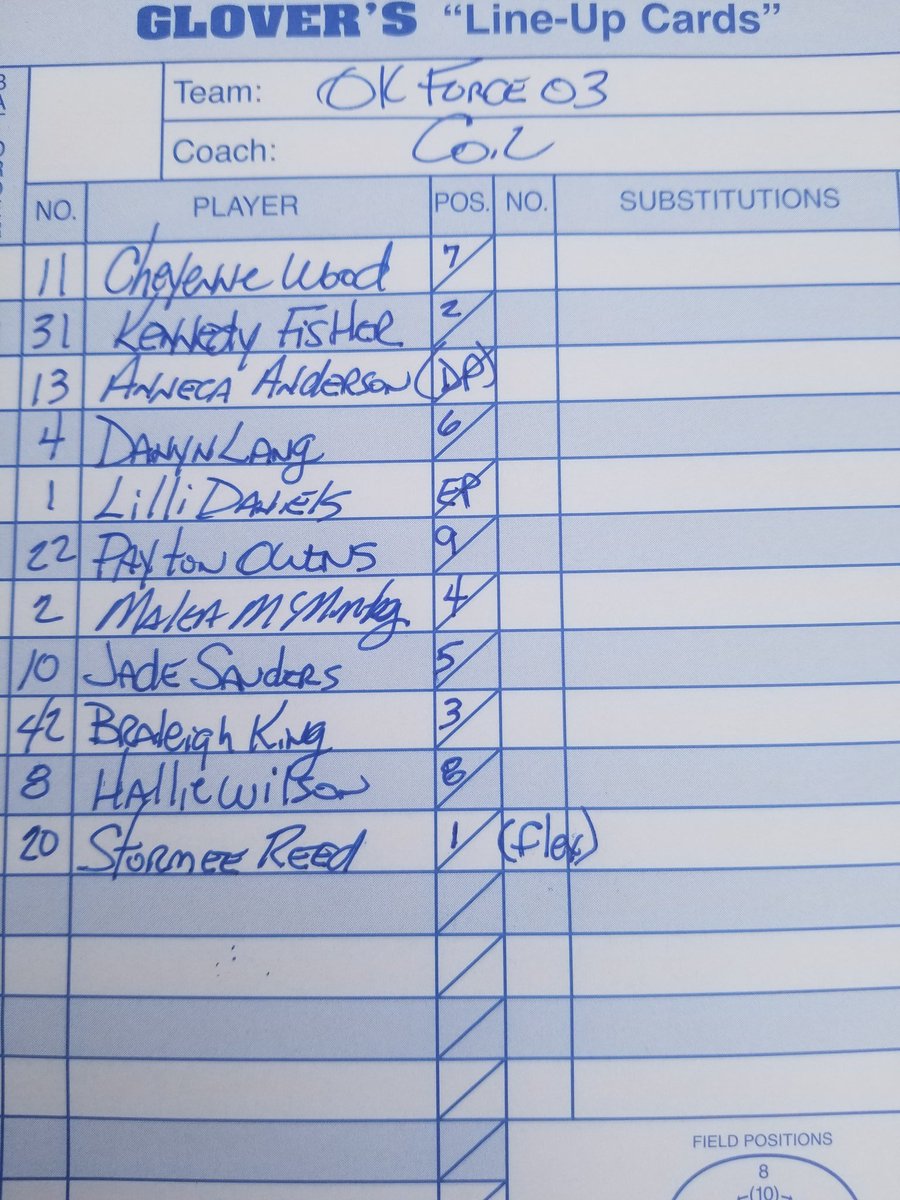 GLOVER'S "Line-Up Cards"
Team: OK FORCE 03
Coach: Coil
NO. PLAYER POS. NO. SUBSTITUTIONS
11 Cheyenne Wood 7
31 KENNEDY FISHER 2
13 ANNECA ANDERSON (DP)
4 DANYN LANG 6
1 Lilli DANIELS EP
22 PAYTON OWENS 9
2 MALEA 4
10 JADE SANDERS 5
42 BRALEIGH KING 3
8 HALLIE WILSON 8
20 STORMEE REED 1 (flex)
FIELD POSITIONS
8
(10)